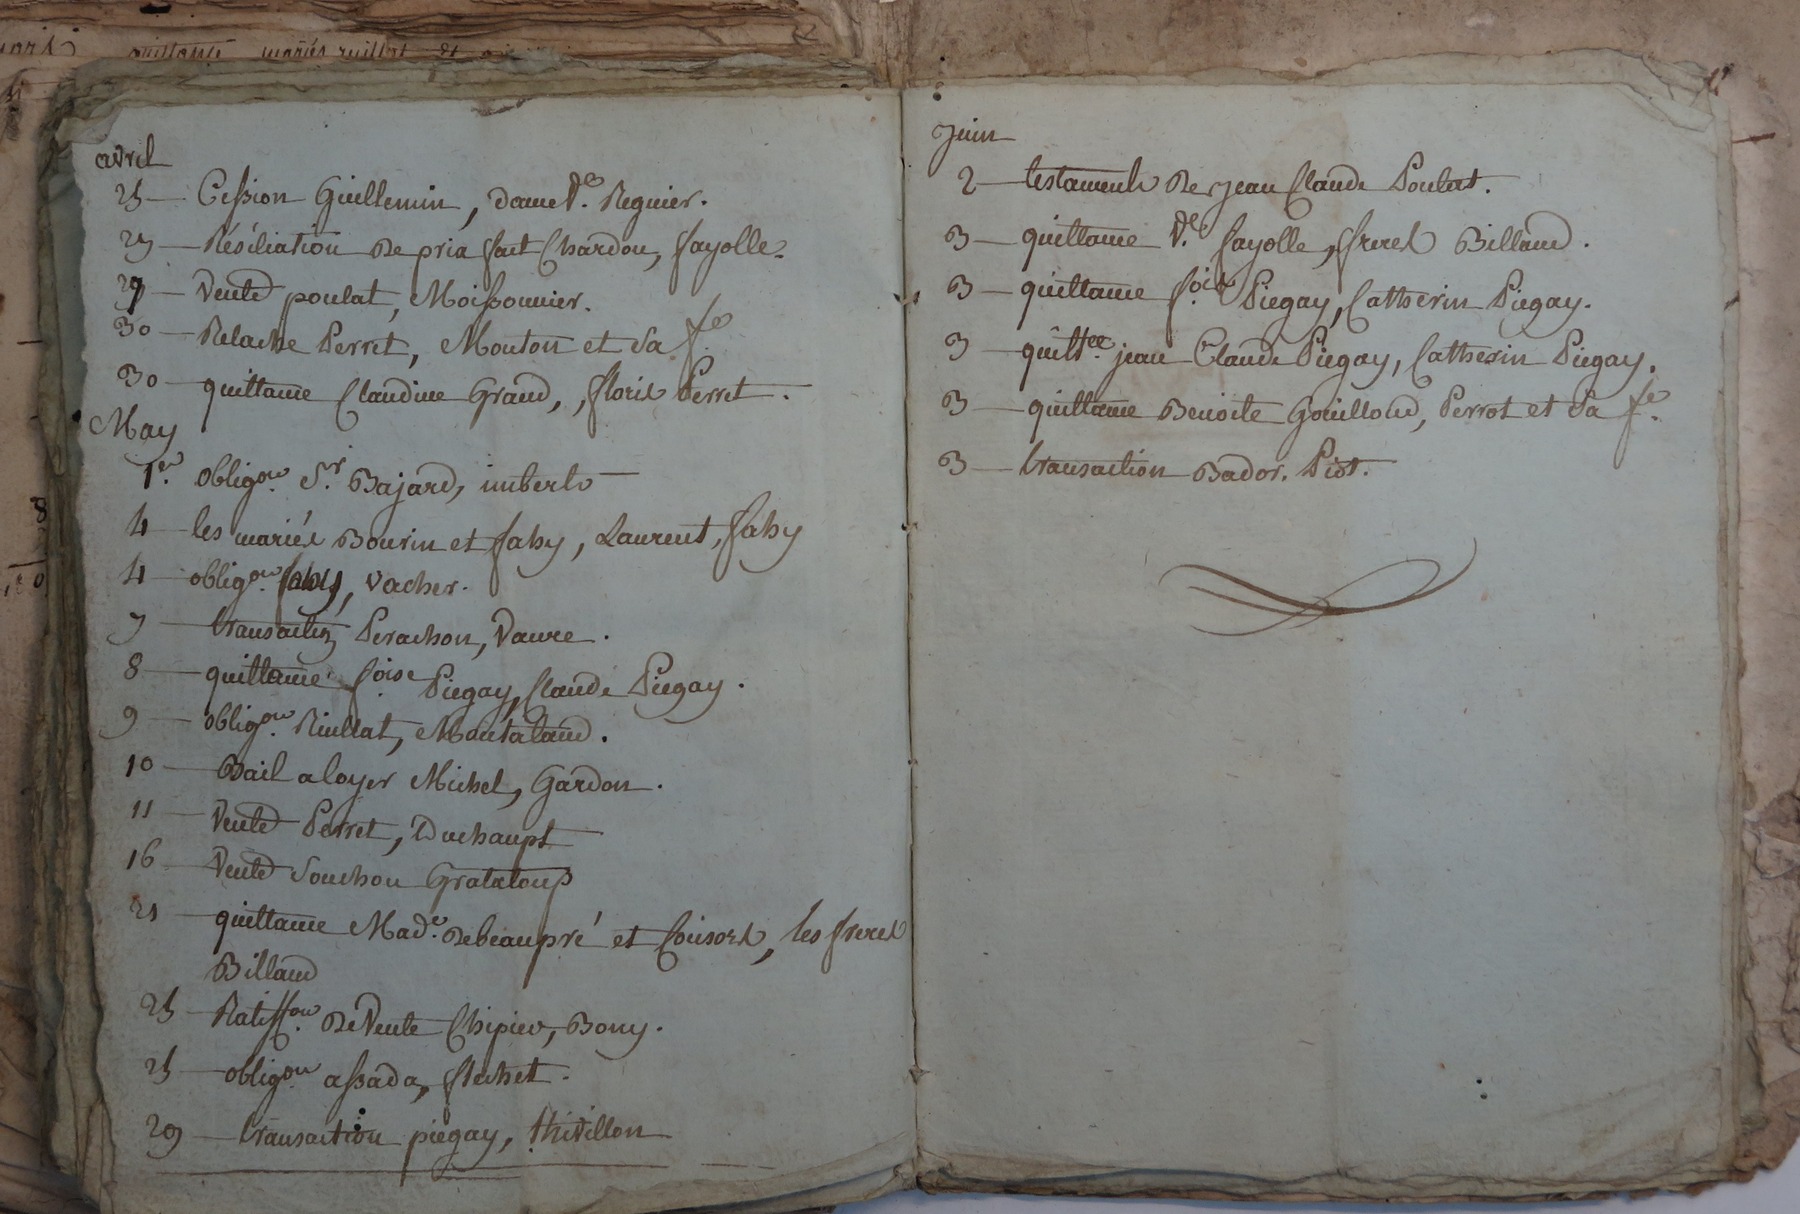 quittance mariés ruillat et
avril
25 — Cession Guillemin, dame Ve. Regnier.
29 — Résiliation de pria fait Chardon, fayolle.
29 — Vente poulat, Moissonnier.
30 — Relache Perret, Mouton et sa fe.
30 — quittance Claudine Grand, floris Perret.
May
1er. obligon. Sr. Bajard, imbert
4 — les mariés Bourin et fahy, Laurent, fahy
4 — obligon. , vacher.
7 — transaction Perachon, Vaure.
8 — quittance foise. Piegay, Claude Piegay.
9 — obligon. Riullat, Montaland.
10 — Bail a loyer Michel, Gardon.
11 — Vente Perret, Duchaupt
16 — Vente Souchon Grataloup
21 — quittance Made. Debeaupré et Consors, les freres
Billand
25 — Ratiffon. de Vente Chipier, Bony.
25 — obligon assada, flachet.
29 — transaction piegay, thivillon
Juin
2 — testament de jean Claude Poulat.
3 — quittance Ve. fayolle, freres Billand.
3 — quittance fois. Piegay, Catherin Piegay.
3 — quittce. jean Claude Piegay, Catherin Piegay.
3 — quittance Benoite Gouilloud, Perrot et sa fe.
3 — transaction Bador. Piot.